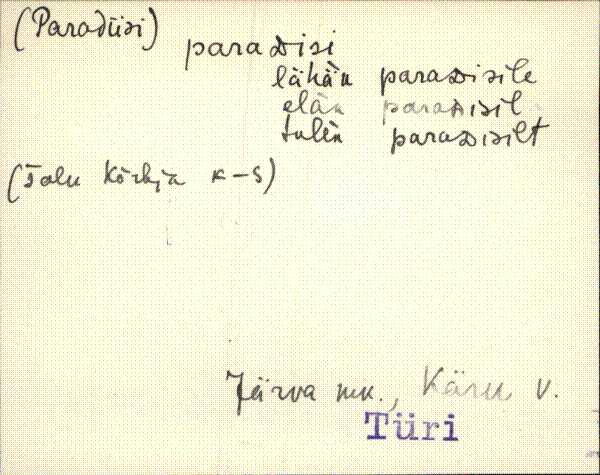 (Paradiisi)
paraDisi
lähän paraDisile
elän paraDisil
tulen paraDisilt
(Talu Kõrbja k-s)
Järva mk., Käru v.
Türi